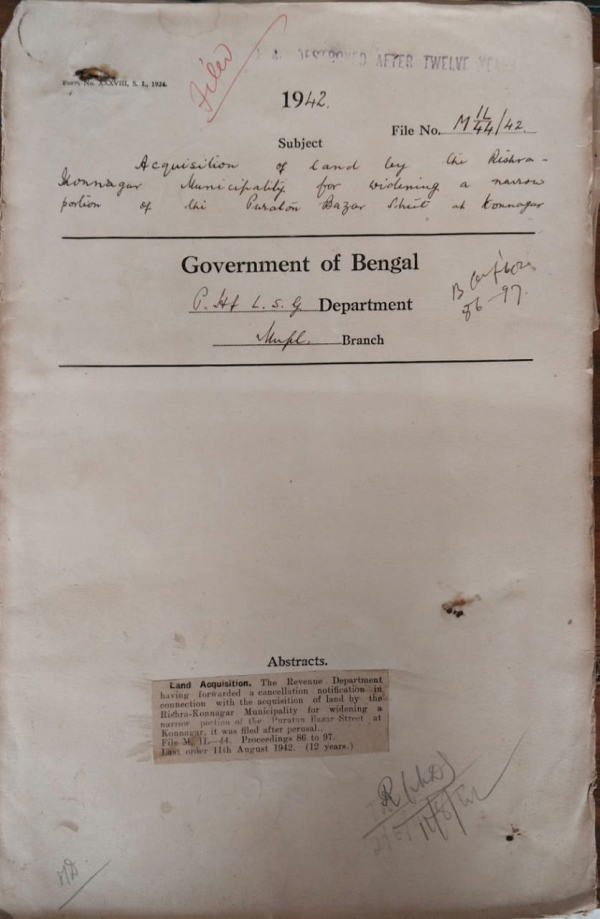 Filed
DESTROYED AFTER TWELVE YEARS
Form No. XXXVIII, S. I., 1934.
1942.
File No. M 1L/44/42.
Subject
Acquisition of land by the Rishra-
Konnagar Municipality for widening a narrow
portion of the Puratan Bazar Street at Konnagar
Government of Bengal
P. H & L. S. G. Department
B
86-97.
Mupl. Branch
Abstracts.
Land Acquisition. The Revenue Department
having forwarded a cancellation notification in
connection with the acquisition of land by the
Rishra-Konnagar Municipality for widening a
narrow portion of the Puratan Bazar Street at
Konnagar, it was filed after perusal.
File M. 1L—44. Proceedings 86 to 97.
Last order 11th August 1942. (12 years.)